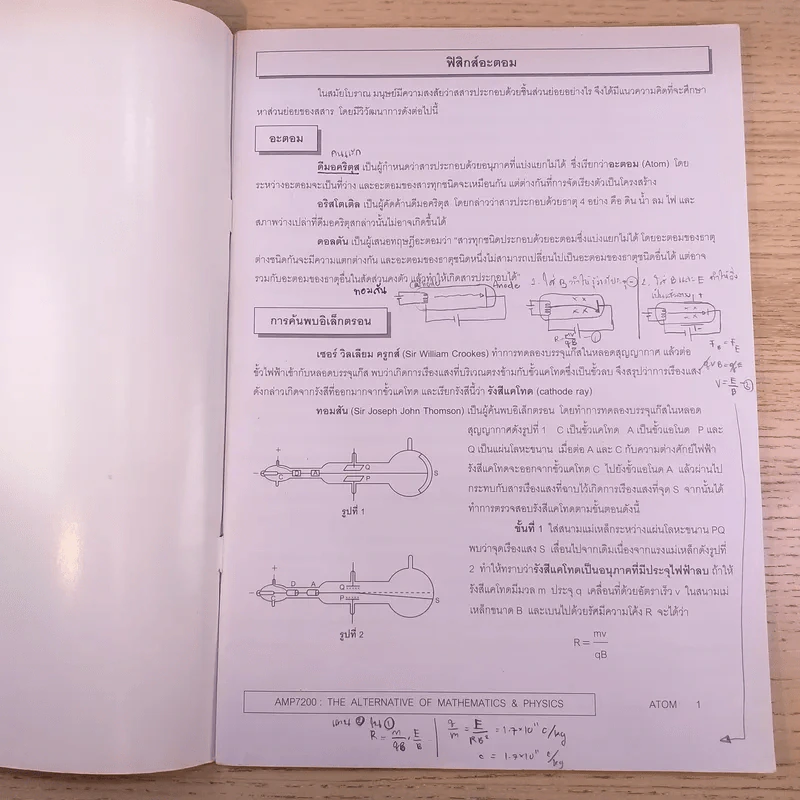 ฟิสิกส์อะตอม
ในสมัยโบราณ มนุษย์มีความสงสัยว่าสสารประกอบด้วยชิ้นส่วนย่อยอย่างไร จึงได้มีแนวความคิดที่จะศึกษา
หาส่วนย่อยของสสาร โดยมีวิวัฒนาการดังต่อไปนี้
อะตอม
คนแรก
ดีมอคริตุส เป็นผู้กำหนดว่าสารประกอบด้วยอนุภาคที่แบ่งแยกไม่ได้ ซึ่งเรียกว่าอะตอม (Atom) โดย
ระหว่างอะตอมจะเป็นที่ว่าง และอะตอมของสารทุกชนิดจะเหมือนกัน แต่ต่างกันที่การจัดเรียงตัวเป็นโครงสร้าง
อริสโตเติล เป็นผู้คัดค้านดีมอคริตุส โดยกล่าวว่าสารประกอบด้วยธาตุ 4 อย่าง คือ ดิน น้ำ ลม ไฟ และ
สภาพว่างเปล่าที่ดีมอคริตุสกล่าวนั้นไม่อาจเกิดขึ้นได้
ดอลตัน เป็นผู้เสนอทฤษฎีอะตอมว่า "สารทุกชนิดประกอบด้วยอะตอมซึ่งแบ่งแยกไม่ได้ โดยอะตอมของธาตุ
ต่างชนิดกันจะมีความแตกต่างกัน และอะตอมของธาตุชนิดหนึ่งไม่สามารถเปลี่ยนไปเป็นอะตอมของธาตุชนิดอื่นได้ แต่อาจ
รวมกับอะตอมของธาตุอื่นในสัดส่วนคงตัว แล้วทำให้เกิดสารประกอบได้"
ทอมสัน
Anode
2. ใส่ B และ E
R = mv/qB - ①
F_B = F_E
qvB = qE
V = E/B - ②
การค้นพบอิเล็กตรอน
เซอร์ วิลเลียม ครูกส์ (Sir William Crookes) ทำการทดลองบรรจุแก๊สในหลอดสุญญากาศ แล้วต่อ
ขั้วไฟฟ้าเข้ากับหลอดบรรจุแก๊ส พบว่าเกิดการเรืองแสงที่บริเวณตรงข้ามกับขั้วแคโทดซึ่งเป็นขั้วลบ จึงสรุปว่าการเรืองแสง
ดังกล่าวเกิดจากรังสีที่ออกมาจากขั้วแคโทด และเรียกรังสีนี้ว่า รังสีแคโทด (cathode ray)
ทอมสัน (Sir Joseph John Thomson) เป็นผู้ค้นพบอิเล็กตรอน โดยทำการทดลองบรรจุแก๊สในหลอด
สุญญากาศดังรูปที่ 1 C เป็นขั้วแคโทด A เป็นขั้วแอโนด P และ
Q เป็นแผ่นโลหะขนาน เมื่อต่อ A และ C กับความต่างศักย์ไฟฟ้า
รังสีแคโทดจะออกจากขั้วแคโทด C ไปยังขั้วแอโนด A แล้วผ่านไป
กระทบกับสารเรืองแสงที่ฉาบไว้เกิดการเรืองแสงที่จุด S จากนั้นได้
ทำการตรวจสอบรังสีแคโทดตามขั้นตอนดังนี้
+ C D A Q P S
รูปที่ 1
ขั้นที่ 1 ใส่สนามแม่เหล็กระหว่างแผ่นโลหะขนาน PQ
พบว่าจุดเรืองแสง S เลื่อนไปจากเดิมเนื่องจากแรงแม่เหล็กดังรูปที่
2 ทำให้ทราบว่ารังสีแคโทดเป็นอนุภาคที่มีประจุไฟฟ้าลบ ถ้าให้
รังสีแคโทดมีมวล m ประจุ q เคลื่อนที่ด้วยอัตราเร็ว v ในสนามแม่
เหล็กขนาด B และเบนไปด้วยรัศมีความโค้ง R จะได้ว่า
+ C D A Q P S
รูปที่ 2
R = mv/qB
AMP7200 : THE ALTERNATIVE OF MATHEMATICS & PHYSICS
ATOM 1
แทน ② ใน ①
R = m/qB · E/B
q/m = E/RB² = 1.7×10¹¹ c/kg